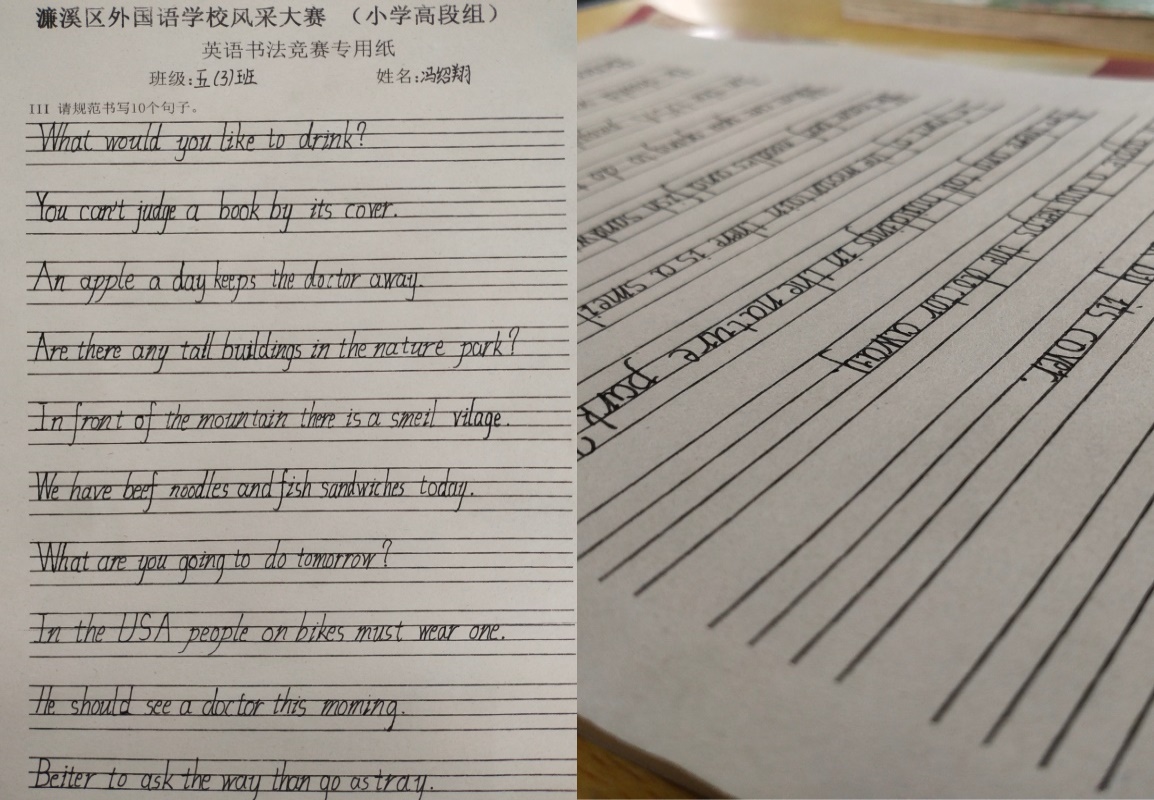 濂溪区外国语学校风采大赛 (小学高段组)
英语书法竞赛专用纸
班级:五(3)班 姓名:冯绍翔
III 请规范书写10个句子。
What would you like to drink?
You can't judge a book by its cover.
An apple a day keeps the doctor away.
Are there any tall buildings in the nature park?
In front of the mountain there is a smeil vilage.
We have beef noodles and fish sandwiches today.
What are you going to do tomorrow?
In the USA people on bikes must wear one.
He should see a doctor this moming.
Beiter to ask the way than go astray.
its cover.
a day keeps the doctor away.
Are there any tall buildings in the nature park
the mountain there is a smeil
noodles and fish sandw